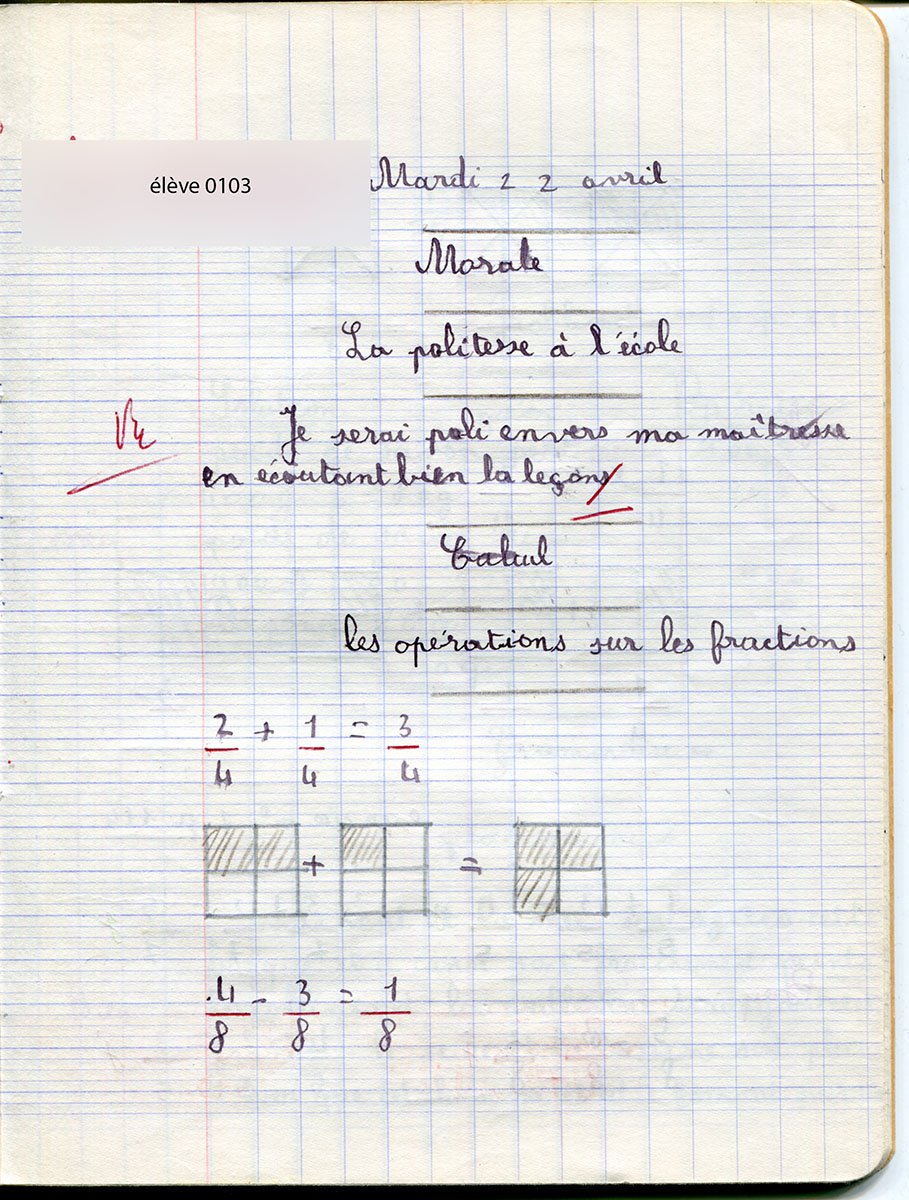 élève 0103
Mardi 22 avril
Morale
La politesse à l'école
Vu
Je serai poli envers ma maîtresse
en écoutant bien la leçons
Calcul
les opérations sur les fractions
2/4 + 1/4 = 3/4
+ =
4/8 - 3/8 = 1/8